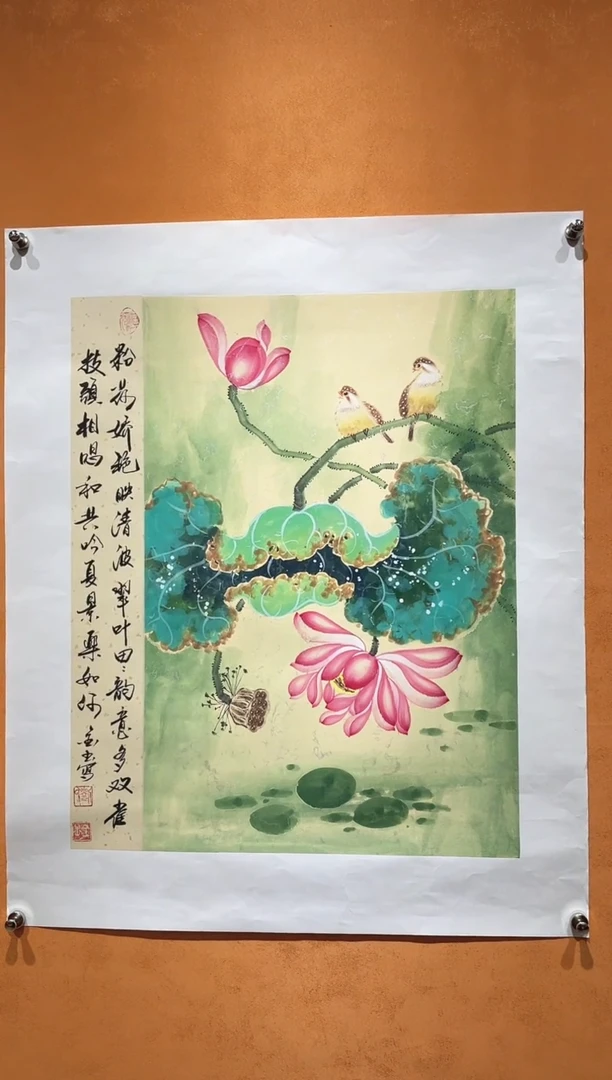 粉荷娇艳映清波翠叶田:韵意多双雀
枝頭相唱和共吟夏景樂如何